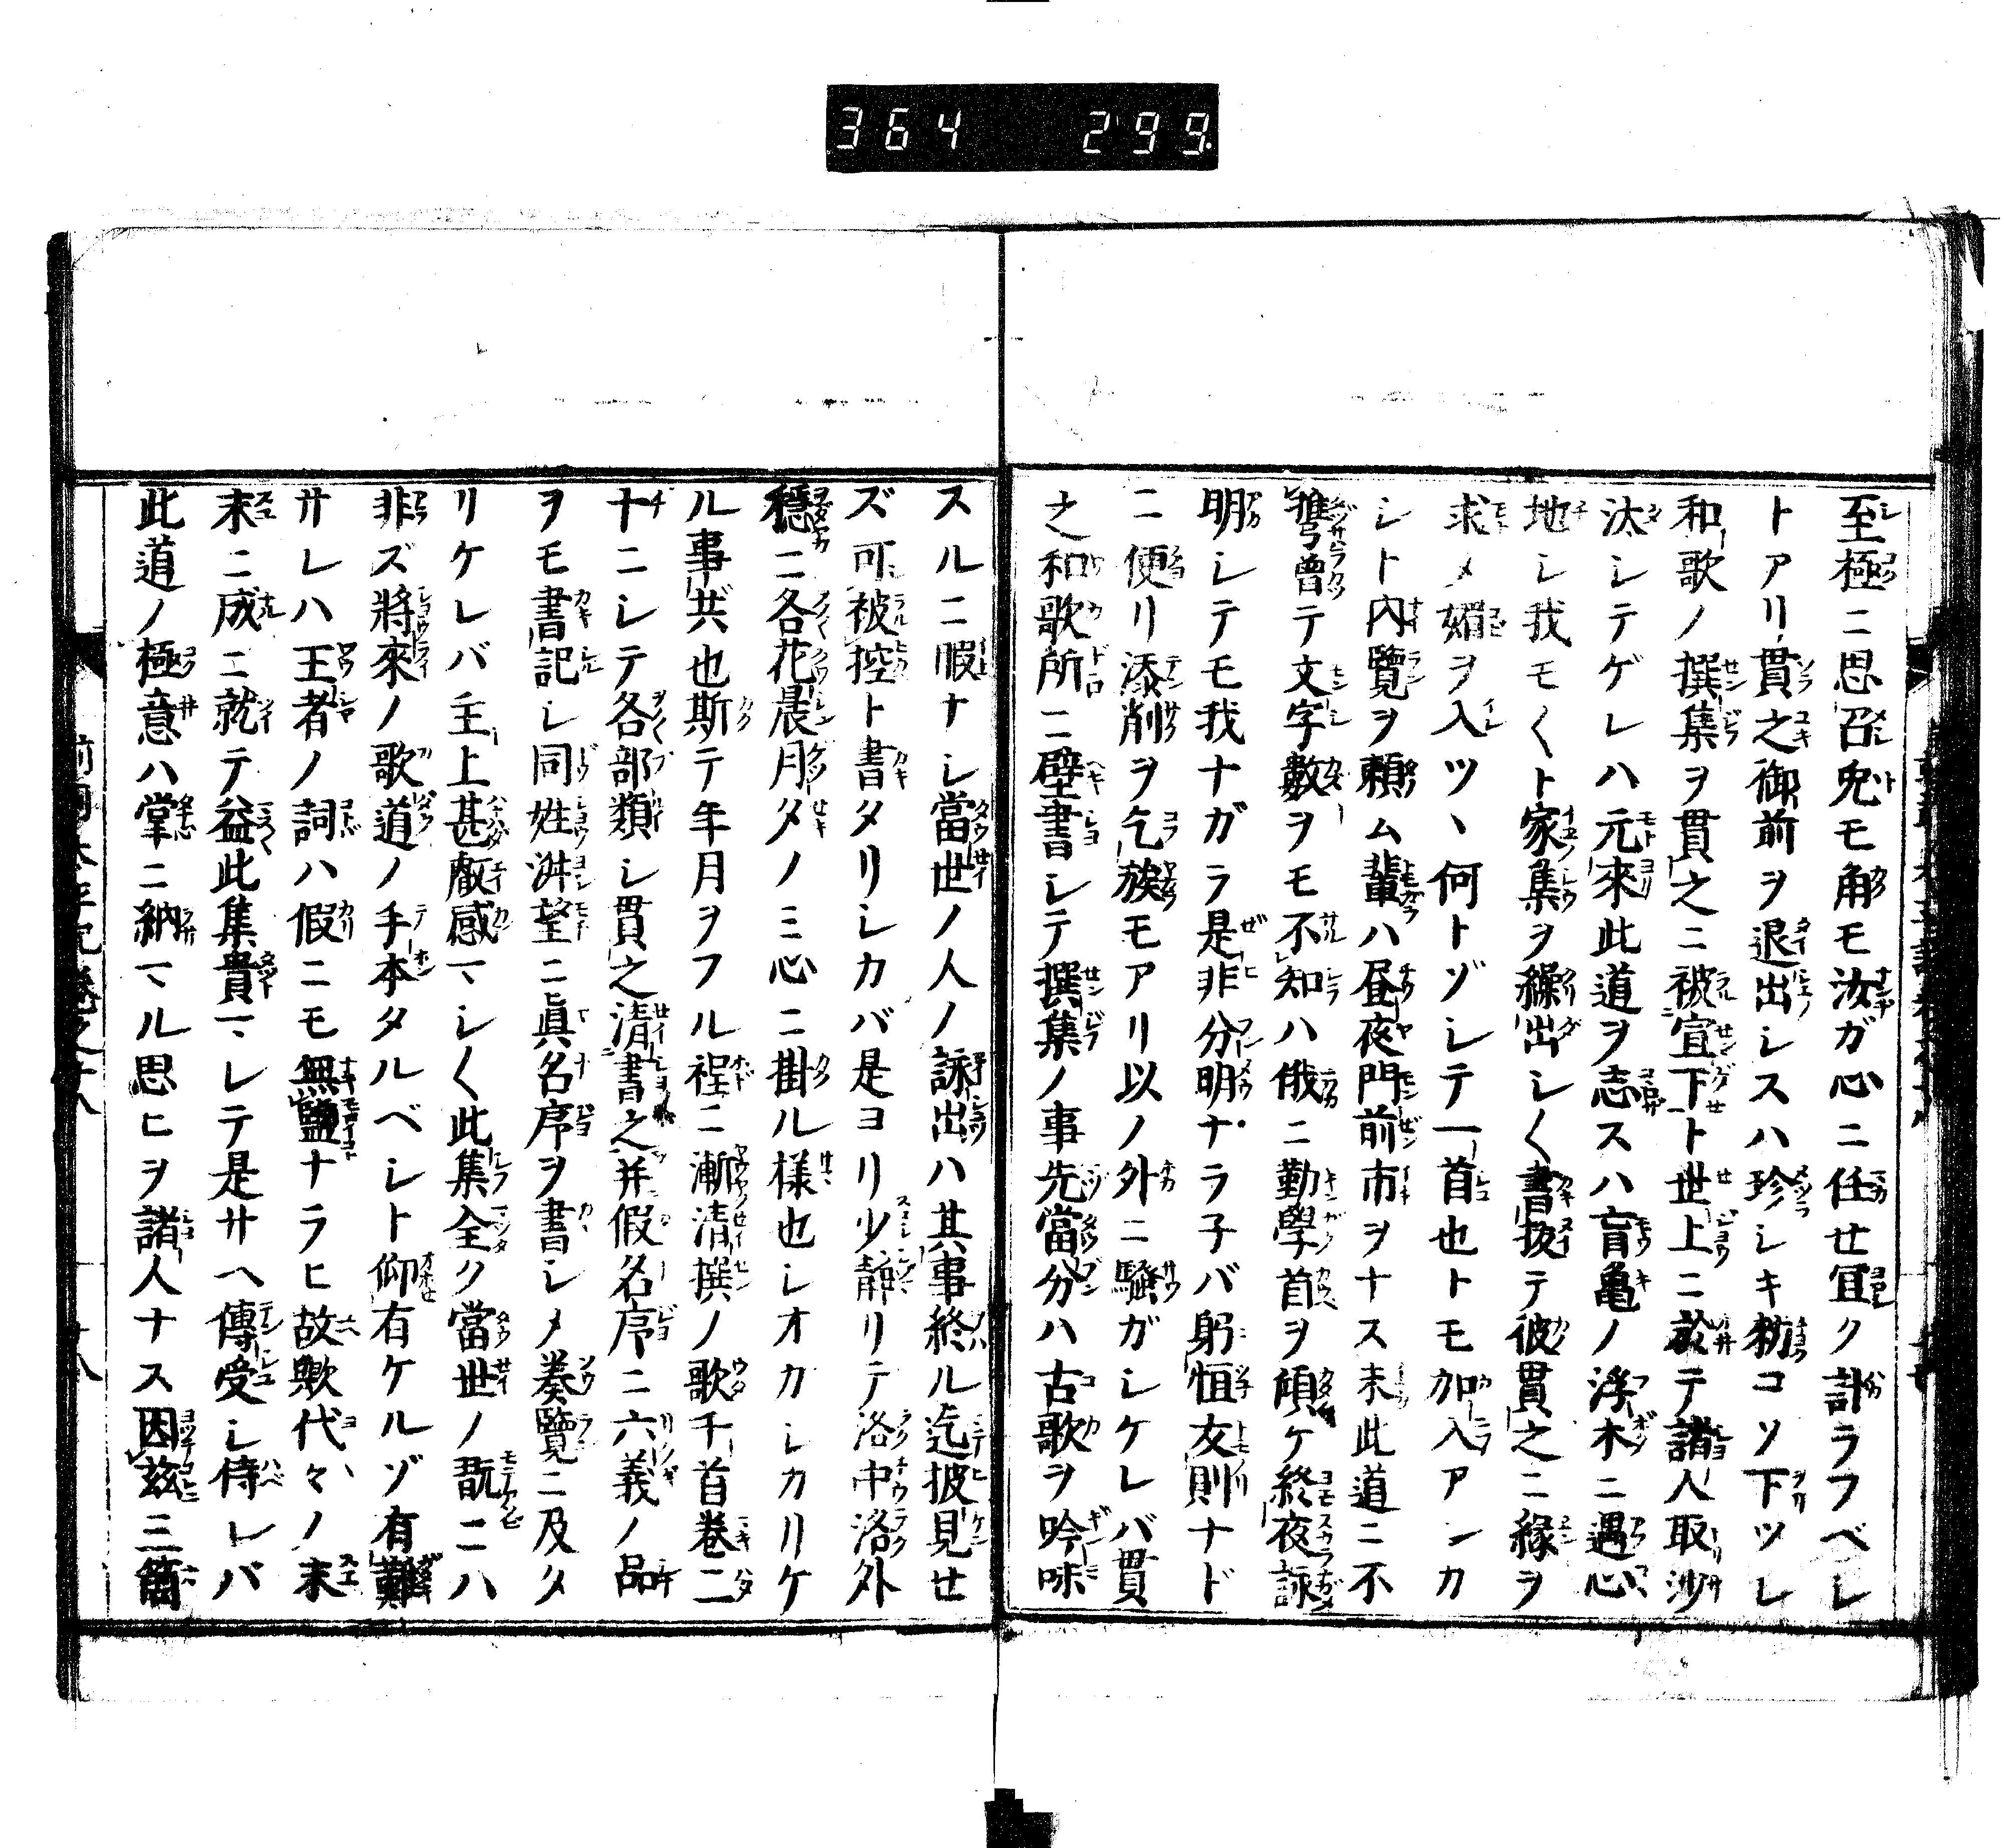 364 299
至極ニ思召兎モ角モ汝ガ心ニ任せ宜ク計ラフベシ
トアリ貫之御前ヲ退出シスハ珍シキ物コソ下ツレ
和歌ノ撰集ヲ貫之ニ被宣下ト世上ニ於テ諸人取沙
汰シテゲレハ元來此道ヲ志スハ盲亀ノ浮木ニ遇心
地シ我モ〱ト家集ヲ繰出シ〱書抜テ彼貫之ニ縁ヲ
求メ媚ヲ入ツヽ何トゾシテ一首也トモ加入アンカ
シト内覽ヲ頼ム輩ハ昼夜門前市ヲナス未此道ニ不
携曽テ文字數ヲモ不知ハ俄ニ勤學首ヲ傾ケ終夜詠
明シテモ我ナガラ是非分明ナラ子バ躬恒友則ナド
ニ便リ添削ヲ乞族モアリ以ノ外ニ騒ガシケレバ貫
之和歌所ニ壁書シテ撰集ノ事先當分ハ古歌ヲ吟味
スルニ暇ナシ當世ノ人ノ詠出ハ其事終ル迄披見せ
ズ可被控ト書タリシカバ是ヨリ少靜リテ洛中洛外
穩ニ各花晨月夕ノミ心ニ掛ル様也シオカシカリケ
ル事共也斯テ年月ヲフル程ニ漸清撰ノ歌千首巻二
十ニシテ各部類シ貫之清書之并假名序ニ六義ノ品
ヲモ書記シ同姓淑望ニ眞名序ヲ書シメ奏覽ニ及タ
リケレバ主上甚叡感マシ〱此集全ク當世ノ翫ニハ
非ズ將來ノ歌道ノ手本タルベシト仰有ケルゾ有難
サレハ王者ノ詞ハ假ニモ無鹽ナラヒ故歟代々ノ末
末ニ成ニ就テ益此集貴マレテ是サヘ傳受シ侍レバ
此道ノ極意ハ掌ニ納マル思ヒヲ諸人ナス因茲三箇